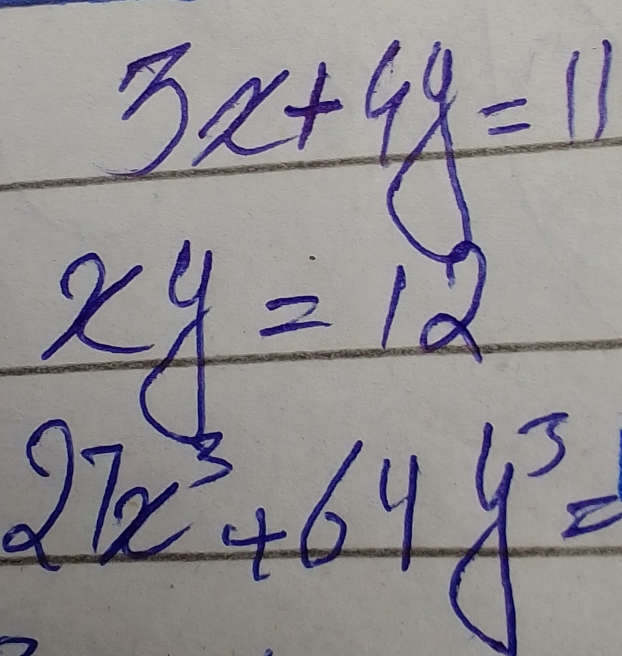 3x+4y=11
xy=12
27x³+64y³=